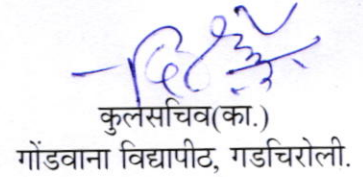 कुलसचिव(का.)
गोंडवाना विद्यापीठ, गडचिरोली.